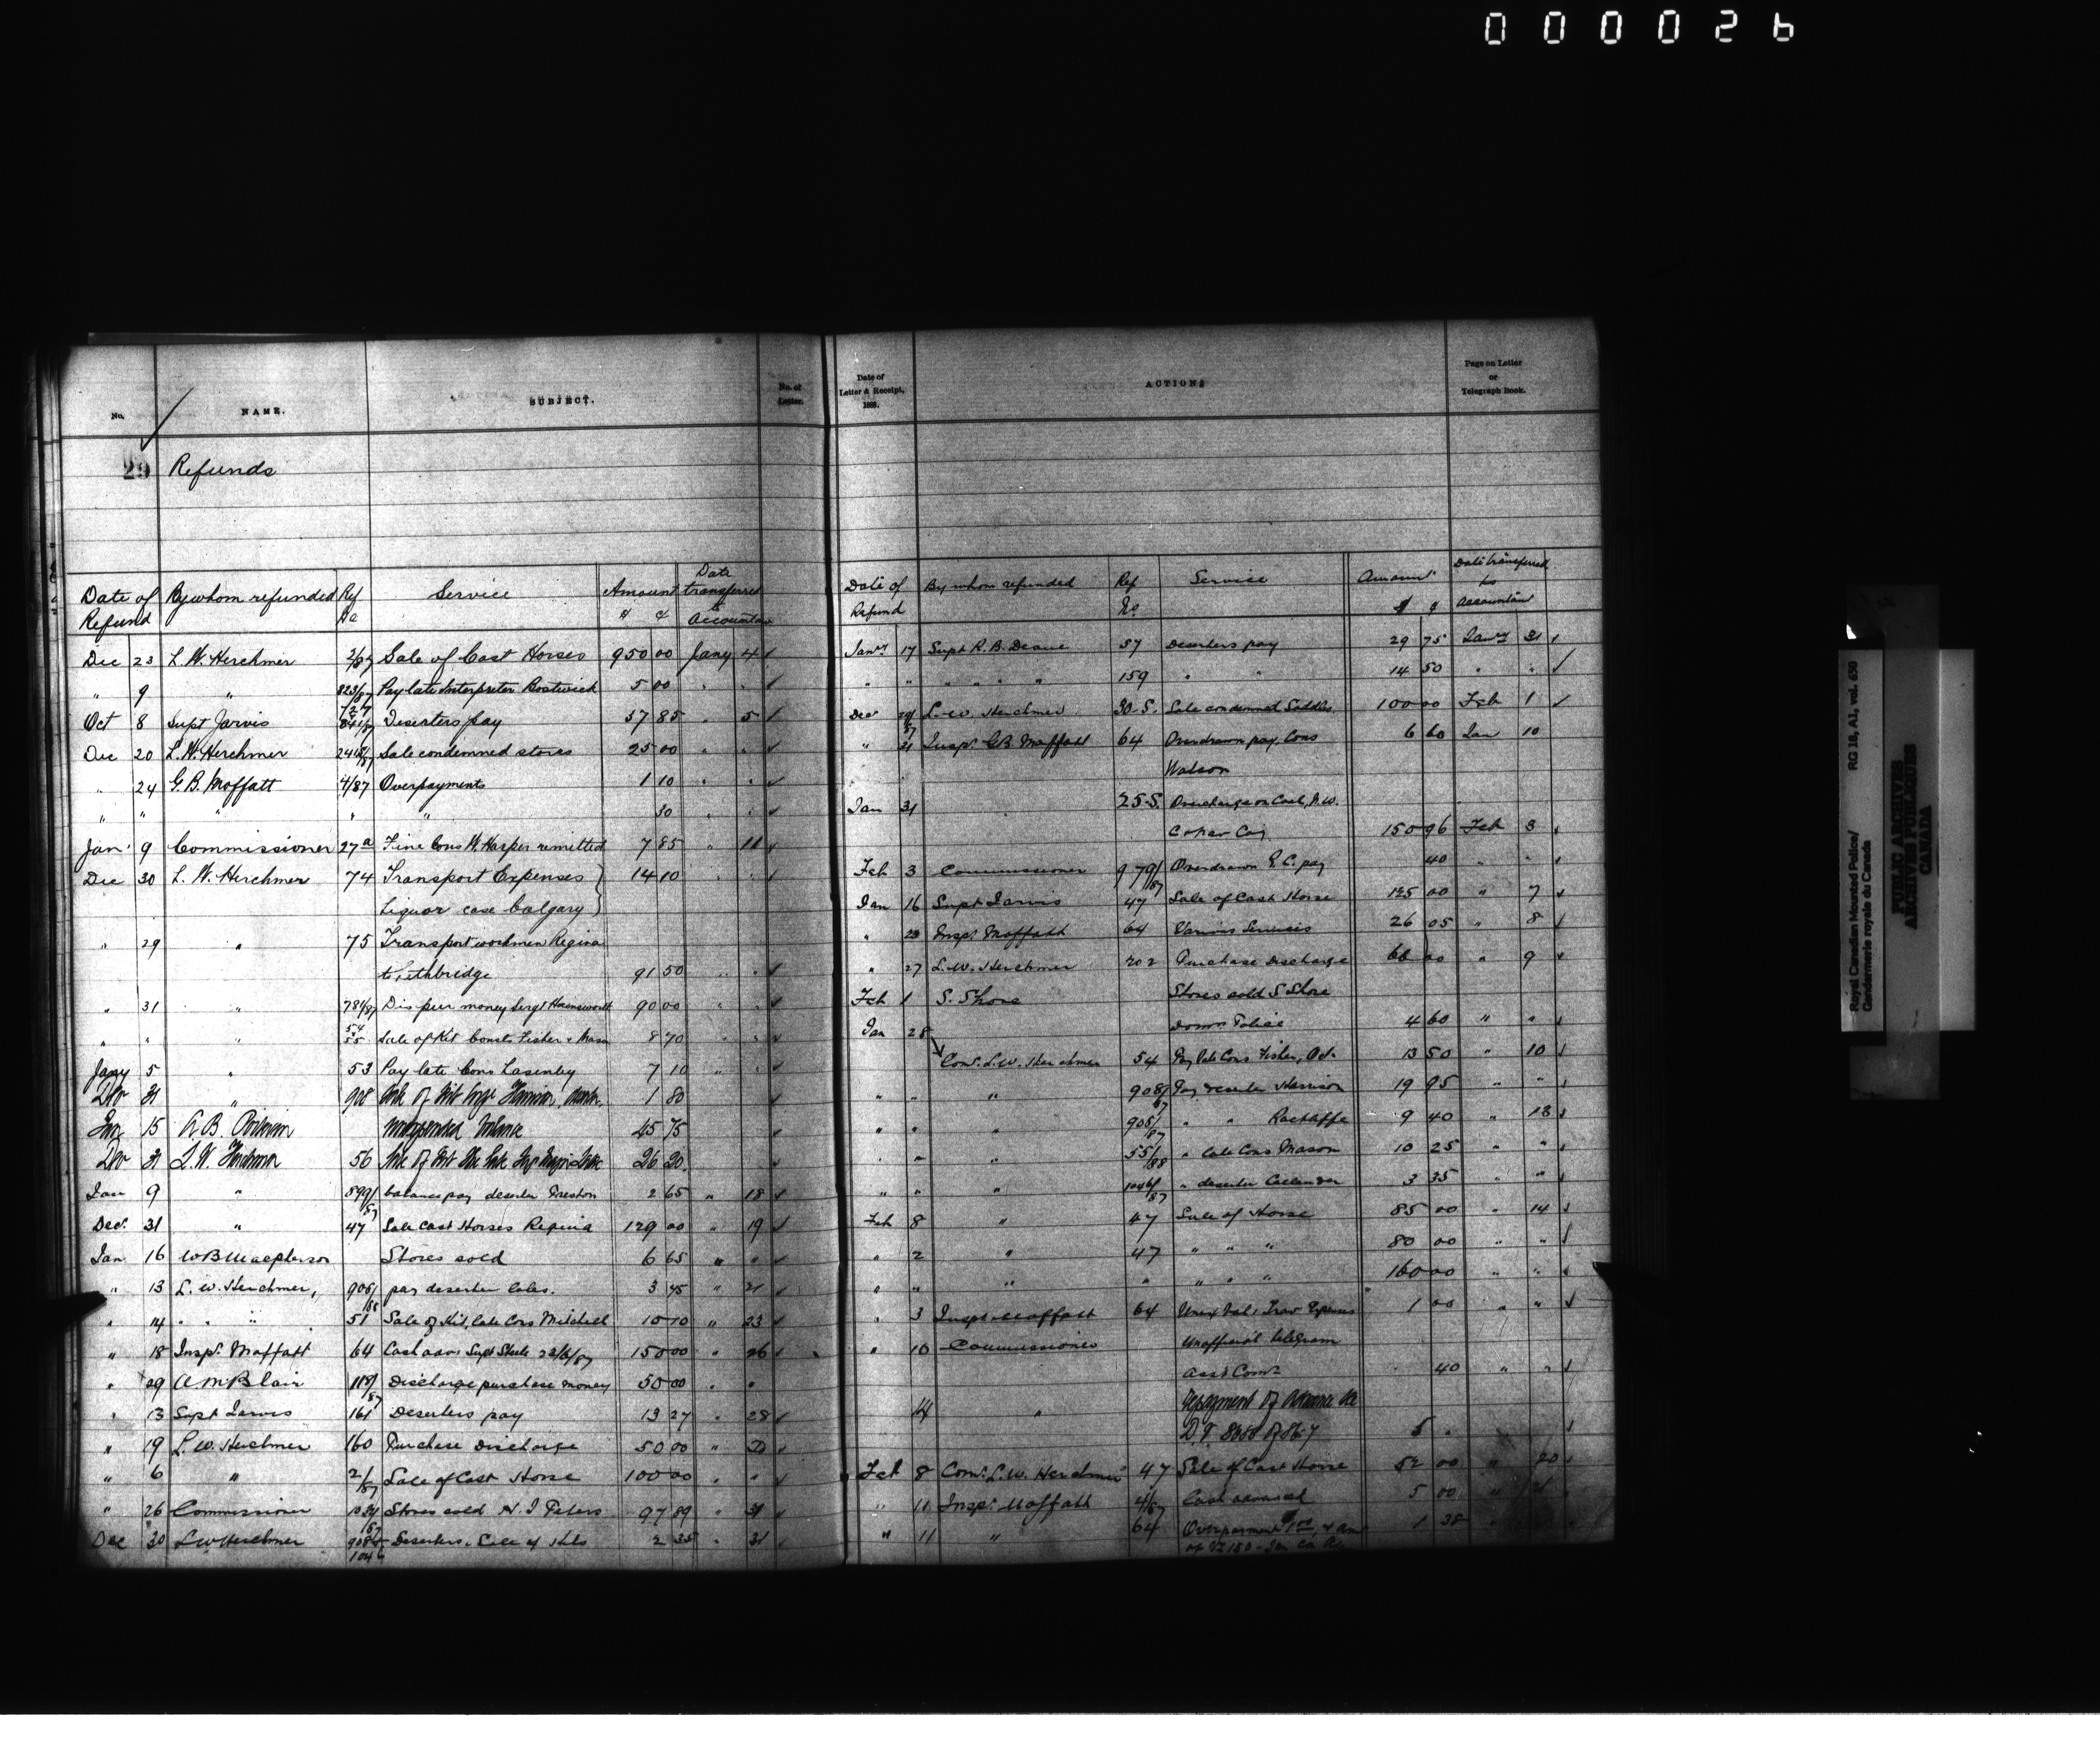 000026
No.
NAME.
SUBJECT.
No. of Letter.
29 Refunds
Date of Refund By whom refunded Ref No Service Amount $ ¢ Date transferred to Accountant
Dec 23 L. W. Herchmer 2/87 Sale of Cast Horses 950 00 Jany 4 ✓
" 9 " 823/87 Pay late Interpreter Bostwick 5 00 " " ✓
Oct 8 Supt Jarvis 841/87 Deserters pay 57 85 " 5 ✓
Dec 20 L. W. Herchmer Sale condemned stores 25 00 " " ✓
" 24 G. B. Moffatt 4/87 Overpayments 1 10 " " ✓
" " " " " 30 " " ✓
Jan 9 Commissioner 27a Fine Cons W. Harper remitted 7 85 " 11 ✓
Dec 30 L. W. Herchmer 74 Transport Expenses } 14 10 " " ✓
Liquor case Calgary }
" 29 " 75 Transport workmen Regina
to Lethbridge 91 50 " " ✓
" 31 " 781/87 Dis pur money Sergt 90 00 " ✓
" " " 54 55 Sale of Kit Consts Fisher & Mason 8 70 " " ✓
Jany 5 " 53 Pay late Cons Lasenby 7 10 " " ✓
31 " 908 Sale of Kit 1 80 ✓
15 A. B. 45 75 ✓
31 L. W. Herchmer 56 Sale of Kit 26 20 ✓
Jan 9 " 899/87 balance pay deserter Preston 2 65 " 18 ✓
Dec. 31 " 47 Sale Cast Horses Regina 129 00 " 19 ✓
Jan 16 W B Macpherson Stores sold 6 65 " " ✓
" 13 L. W. Herchmer, pay deserter 3 45 " 21 ✓
" 14 " " " 51 Sale of Kit, late Cons Mitchell 10 10 " 23 ✓
" 18 Inspr. Moffatt 64 Cash adv: Supt Steele 22/6/87 150 00 " 26 ✓
" 29 A. McBlair 118/87 Discharge purchase money 50 00 " "
" 13 Supt Jarvis 161 Deserters pay 13 27 " 28 ✓
" 19 L. W. Herchmer 160 Purchase Discharge 50 00 " ✓
" 6 " 2/87 Sale of Cast Horse 100 00 " " ✓
" 26 Commissioner Stores sold N. I. Peters 97 89 " 31 ✓
Dec 30 L W Herchmer 908 1046 Deserters, Sale of Kits 2 35 " 31 ✓
Date of Letter & Receipt, 188 .
ACTION;
Page on Letter or Telegraph Book.
Date of Refund By whom refunded Ref No. Service Amount $ ¢ Date transferred to Accountant
Janry 17 Supt R. B. Deane 57 Deserters pay 29 75 Janry 31 ✓
" " " " " " 159 " " 14 50 " " ✓
Decr L. W. Herchmer 30-S. Sale condemned Saddles 100 00 Feb 1 ✓
" 21 Inspr. G B. Moffatt 64 Overdrawn pay, Cons 6 60 Jan 10
Watson
Jan 31 25-S. Overcharge on Coal, N. W.
C & Nav Coy 150 96 Feb 3 ✓
Feb 3 Commissioner 979/87 Overdrawn pay 40 " " ✓
Jan 16 Supt Jarvis 47 Sale of Cast Horse 125 00 " 7 ✓
" 23 Inspr Moffatt 64 Various Services 26 05 " 8 ✓
" 27 L. W. Herchmer 202 Purchase Discharge 60 00 " 9 ✓
Feb 1 S. Shore Stores sold S Shore
Jan 28 Domn Police 4 60 " " ✓
Comr. L. W. Herchmer 54 Pay late Cons Fisher, Oct. 13 50 " 10 ✓
" " " 908/87 Pay deserter Harrison 19 95 " " ✓
" " " 905/87 " " 9 40 " 13 ✓
" " " 55/88 " late Cons Mason 10 25 " " ✓
" " " 1046/87 " deserter 3 35 " " ✓
Feb 8 " 47 Sale of Horse 85 00 " 14 ✓
" 2 " 47 " " " 80 00 " " ✓
" " " " " " " 160 00 " " ✓
" 3 Inspr Moffatt 64 Unex bal: Trav Expenses 1 00 " " ✓
" 10 Commissioner Unofficial telegram
Asst Comr 40 " " ✓
14 " Repayment of Advance
D. V. 5 " ✓
Feb 8 Comr. L. W. Herchmer 47 Sale of Cast Horse 52 00 " 20 ✓
" 11 Inspr. Moffatt 4/87 Cash advanced 5 00 " 21 ✓
" 11 " 64 Overpayment 1 38 "
Royal Canadian Mounted Police/ RG 18, A1, vol. 650
Gendarmerie royale du Canada
PUBLIC ARCHIVES
ARCHIVES PUBLIQUES
CANADA